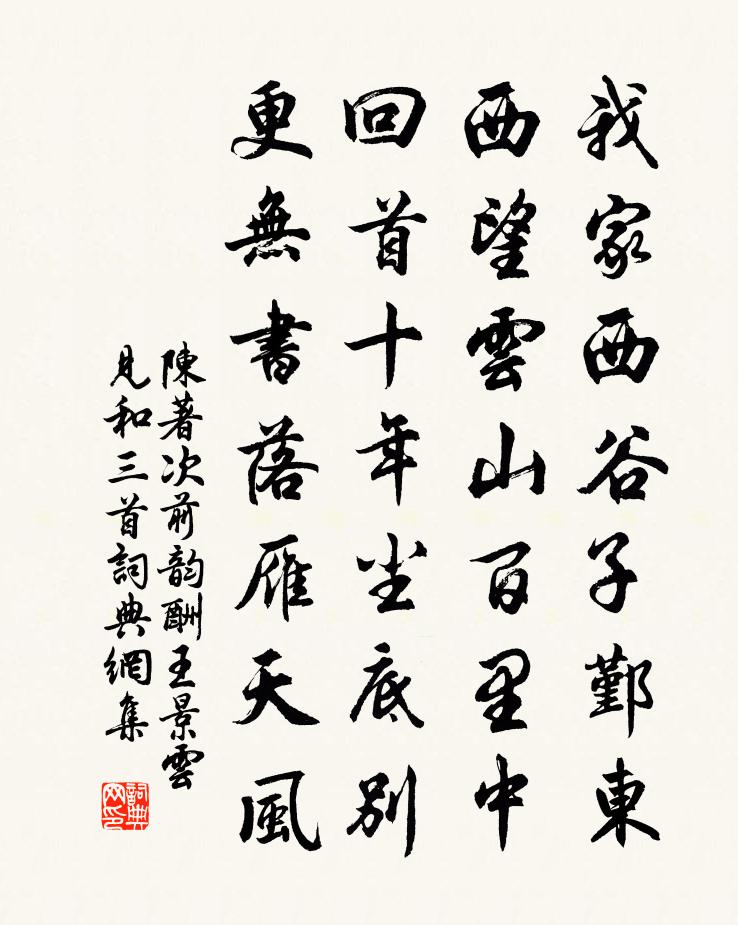 我家西谷子鄞東
西望雲山百里中
回首十年尘底別
更無書落雁天風
陳著次前韵酬王景雲
見和三首詞典網集
詞典
网印